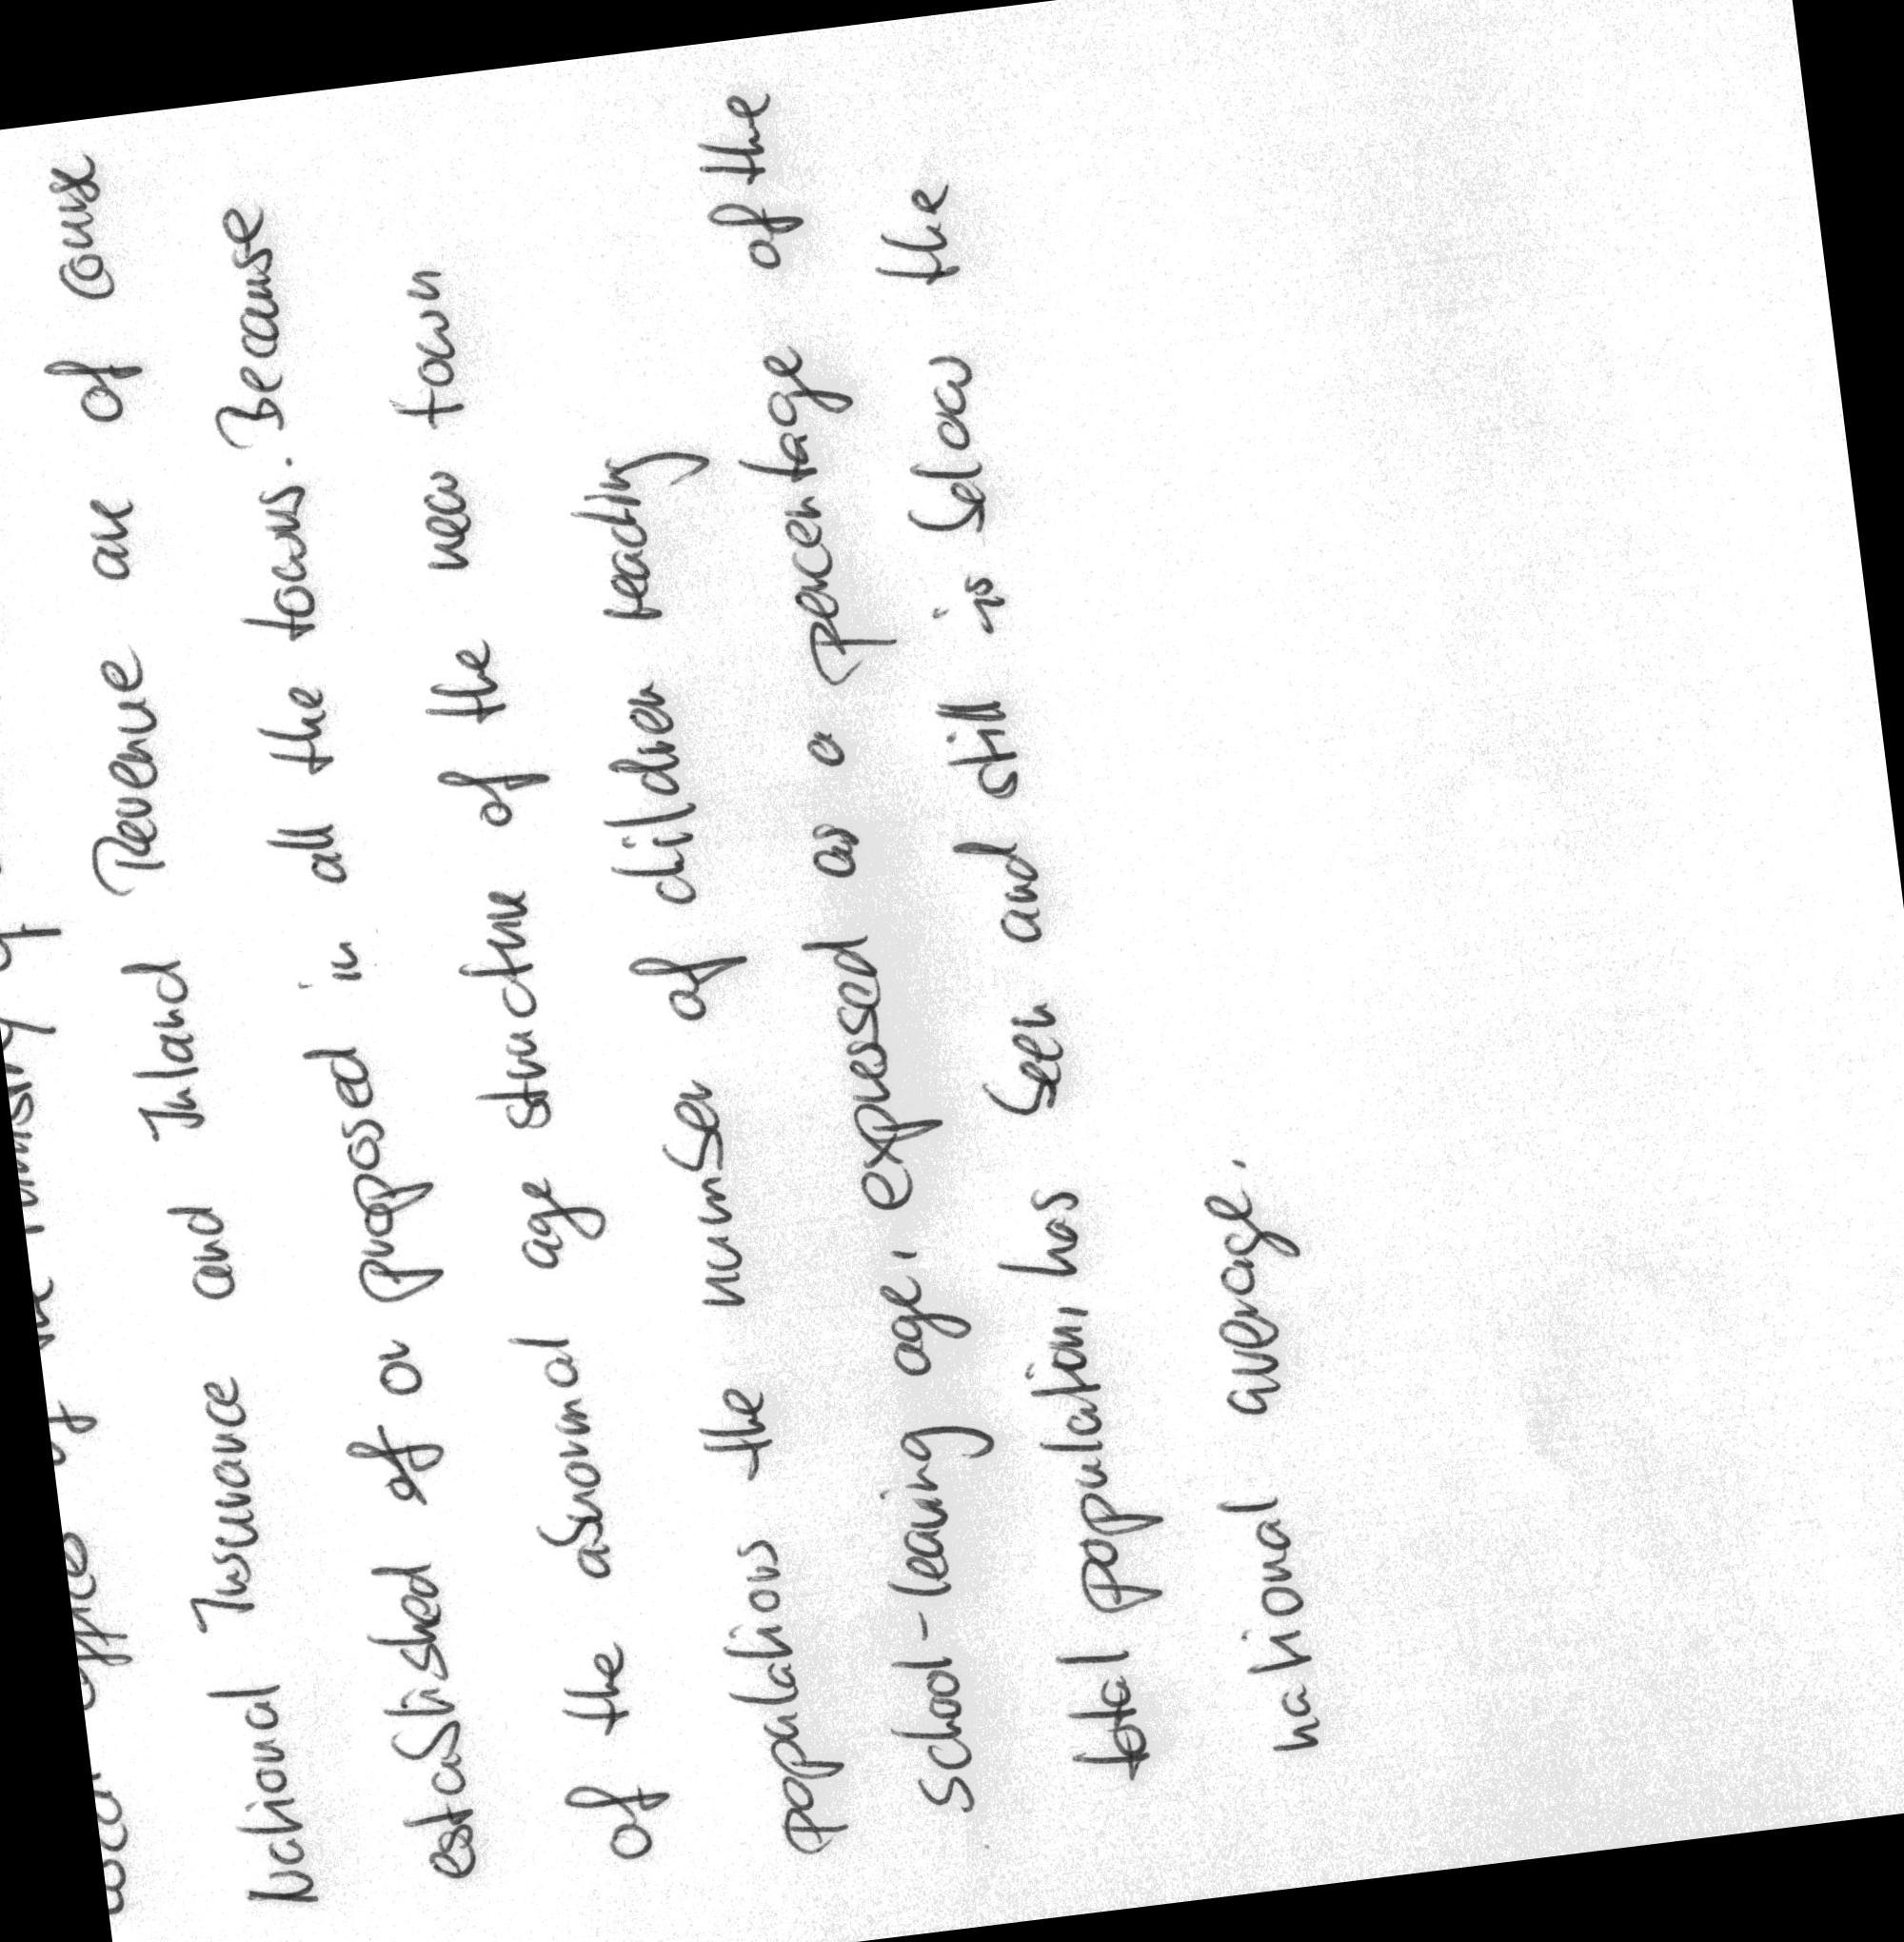 local offices of the Ministry of
National Insurance and Inland Revenue are of course
established of or proposed in all the towns. Because
of the abnormal age structure of the new town
populations the number of children reading
school-leaving age, expressed as a percentage of the
total population, has been and still is below the
national average.